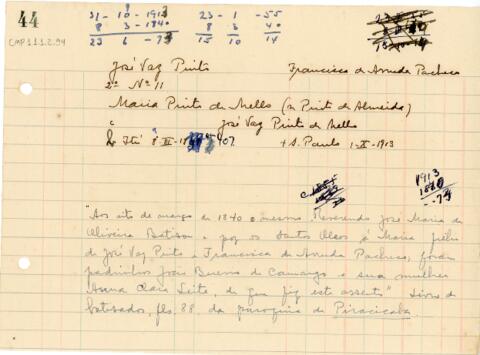 44
CMP 1.1.2.94
31 - 10 - 1913
8 - 3 - 1840
23 6 - 73
23 - 1 - 55
8 3 40
15 10 14
José Vaz Pinto Francisca de Arruda Pacheco
2º Nº 11
Maria Pinto de Mello (ou Pinto de Almeida)
c José Vaz Pinto de Mello
Itú 8-III-1840 + S. Paulo 1-X-1913
1913
1840
73
"Aos oito de março de 1840 o mesmo Reverendo José Maria de
Oliveira Batisou e poz os Santos Oleos á Maria filha
de José Vaz Pinto e Francisca de Arruda Pacheco, foram
padrinhos João Bueno de Camargo e sua mulher
Anna Clara Leite, de que fiz este assento" Livro de
batisados, fls. 88 da paroquia de Piracicaba